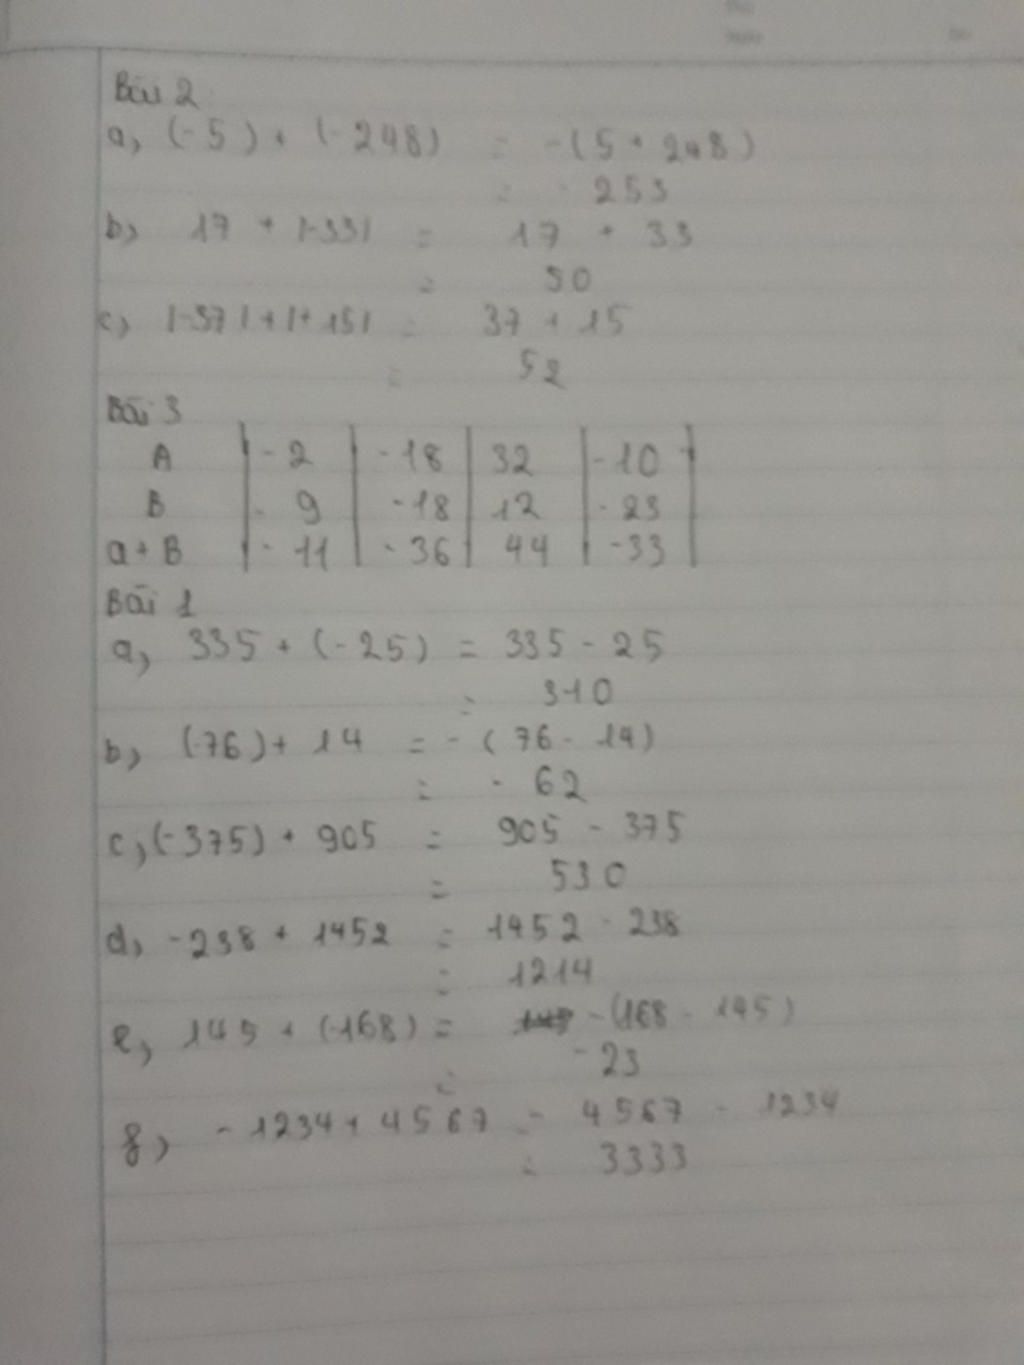 Bài 2
a, (-5) + (-248) = -(5 + 248)
= -253
b, 17 + |-33| = 17 + 33
= 50
c, |-37| + |+15| = 37 + 15
= 52
Bài 3
A | -2 | -18 | 32 | -10 |
B | -9 | -18 | 12 | -23 |
a+B | -11 | -36 | 44 | -33 |
Bài 1
a, 335 + (-25) = 335 - 25
= 310
b, (-76) + 14 = -(76 - 14)
= -62
c, (-375) + 905 = 905 - 375
= 530
d, -238 + 1452 = 1452 - 238
= 1214
e, 145 + (-168) = -(168 - 145)
= -23
g, -1234 + 4567 = 4567 - 1234
= 3333